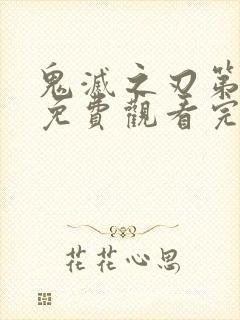 鬼滅之刃第
免費觀看完
花花心思